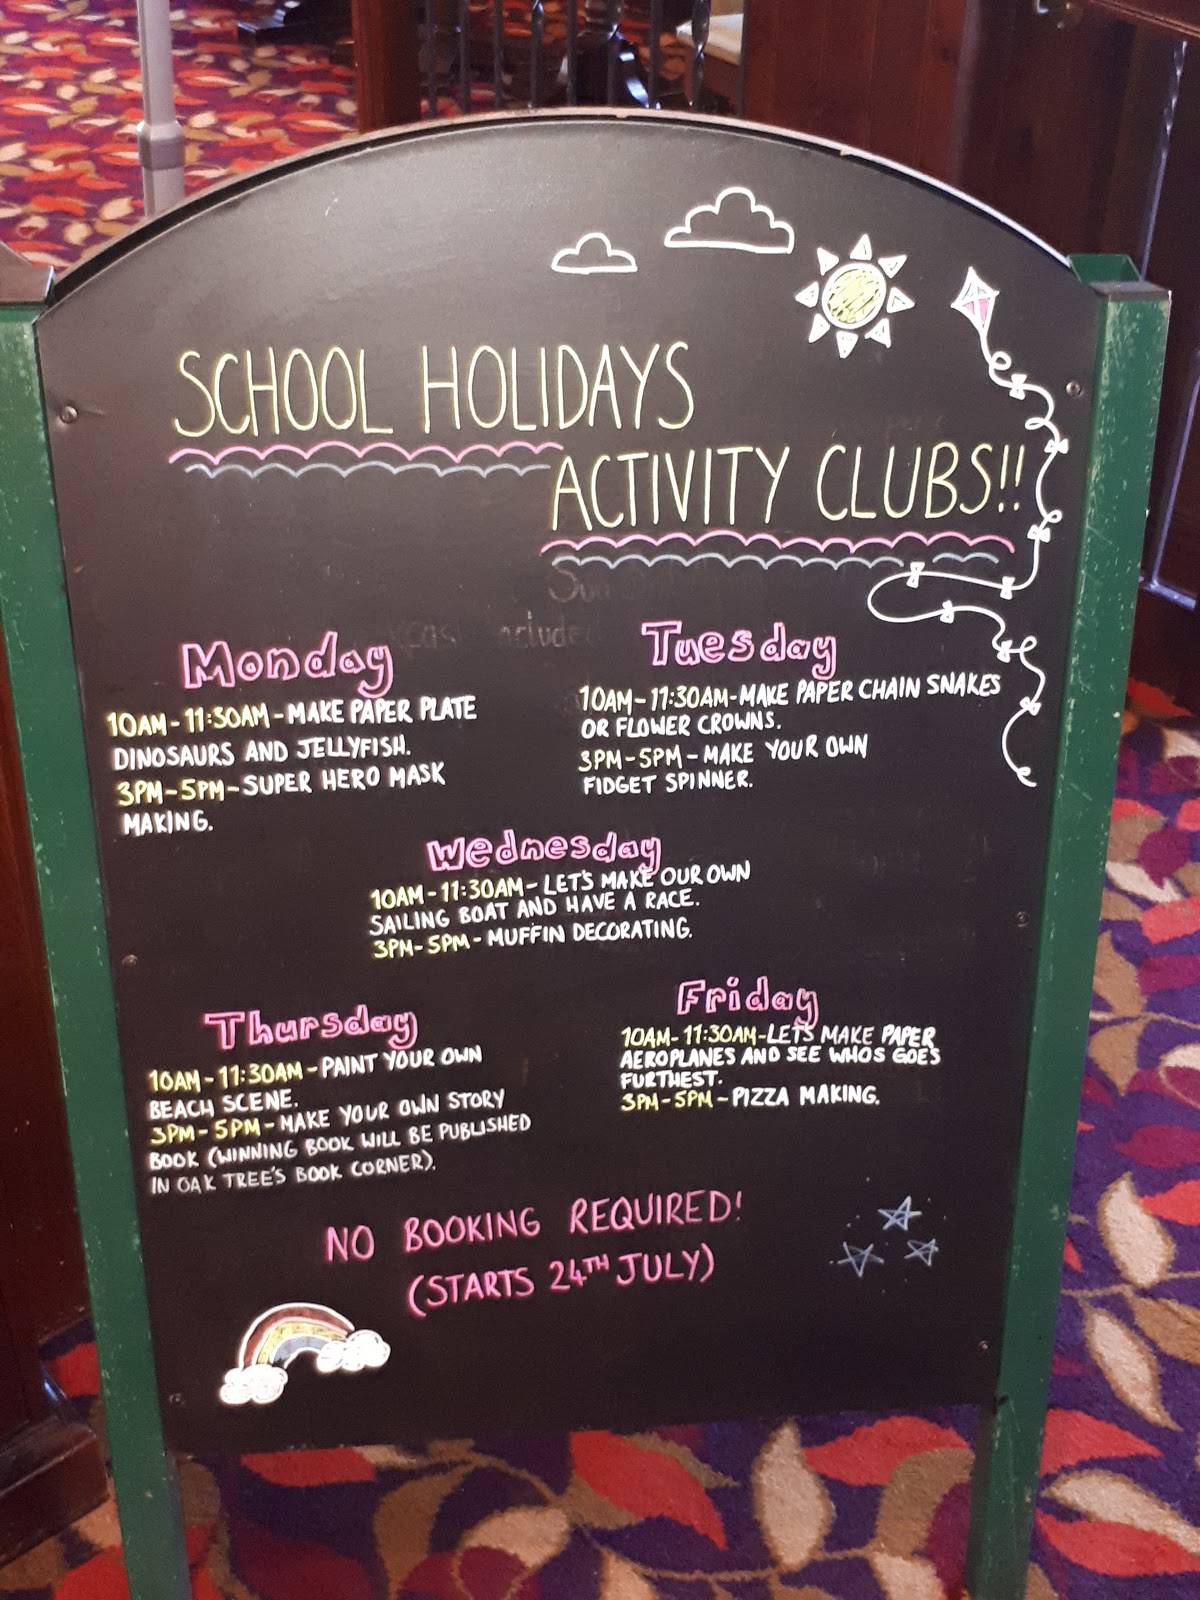 SCHOOL HOLIDAYS
ACTIVITY CLUBS!!
Monday
10AM - 11:30AM - MAKE PAPER PLATE
DINOSAURS AND JELLYFISH.
3PM - 5PM - SUPER HERO MASK
MAKING.
Tuesday
10AM - 11:30AM - MAKE PAPER CHAIN SNAKES
OR FLOWER CROWNS.
3PM - 5PM - MAKE YOUR OWN
FIDGET SPINNER.
Wednesday
10AM - 11:30AM - LET'S MAKE OUR OWN
SAILING BOAT AND HAVE A RACE.
3PM - 5PM - MUFFIN DECORATING.
Thursday
10AM - 11:30AM - PAINT YOUR OWN
BEACH SCENE.
3PM - 5PM - MAKE YOUR OWN STORY
BOOK (WINNING BOOK WILL BE PUBLISHED
IN OAK TREE'S BOOK CORNER).
Friday
10AM - 11:30AM - LETS MAKE PAPER
AEROPLANES AND SEE WHOS GOES
FURTHEST.
3PM - 5PM - PIZZA MAKING.
NO BOOKING REQUIRED!
(STARTS 24TH JULY)